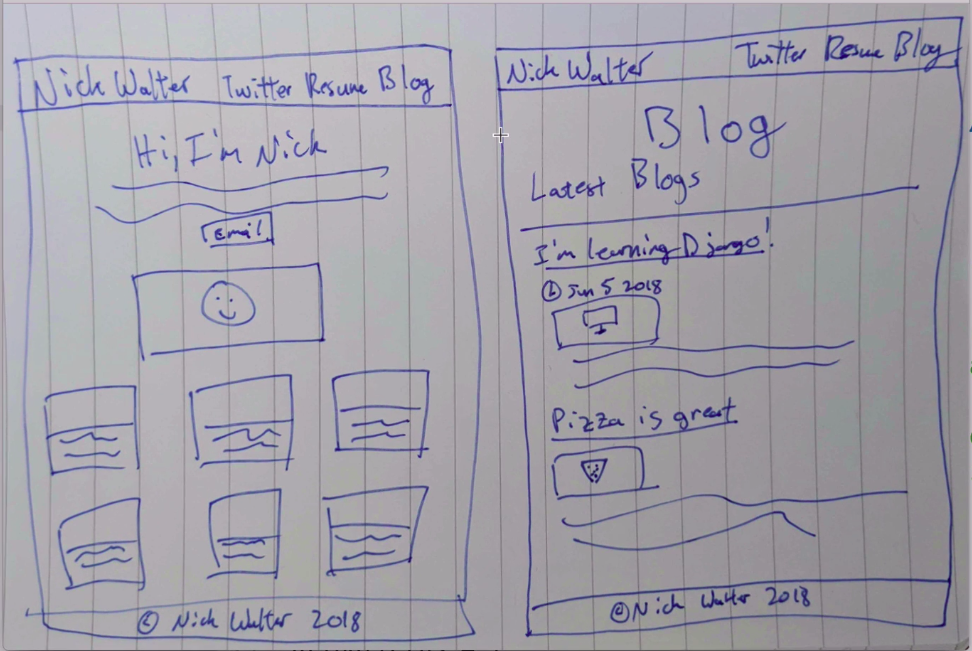 Nick Walter Twitter Resume Blog
Hi, I'm Nick
Email
© Nick Walter 2018
Nick Walter Twitter Resume Blog
Blog
Latest Blogs
I'm learning Django!
Jun 5 2018
Pizza is great
© Nick Walter 2018